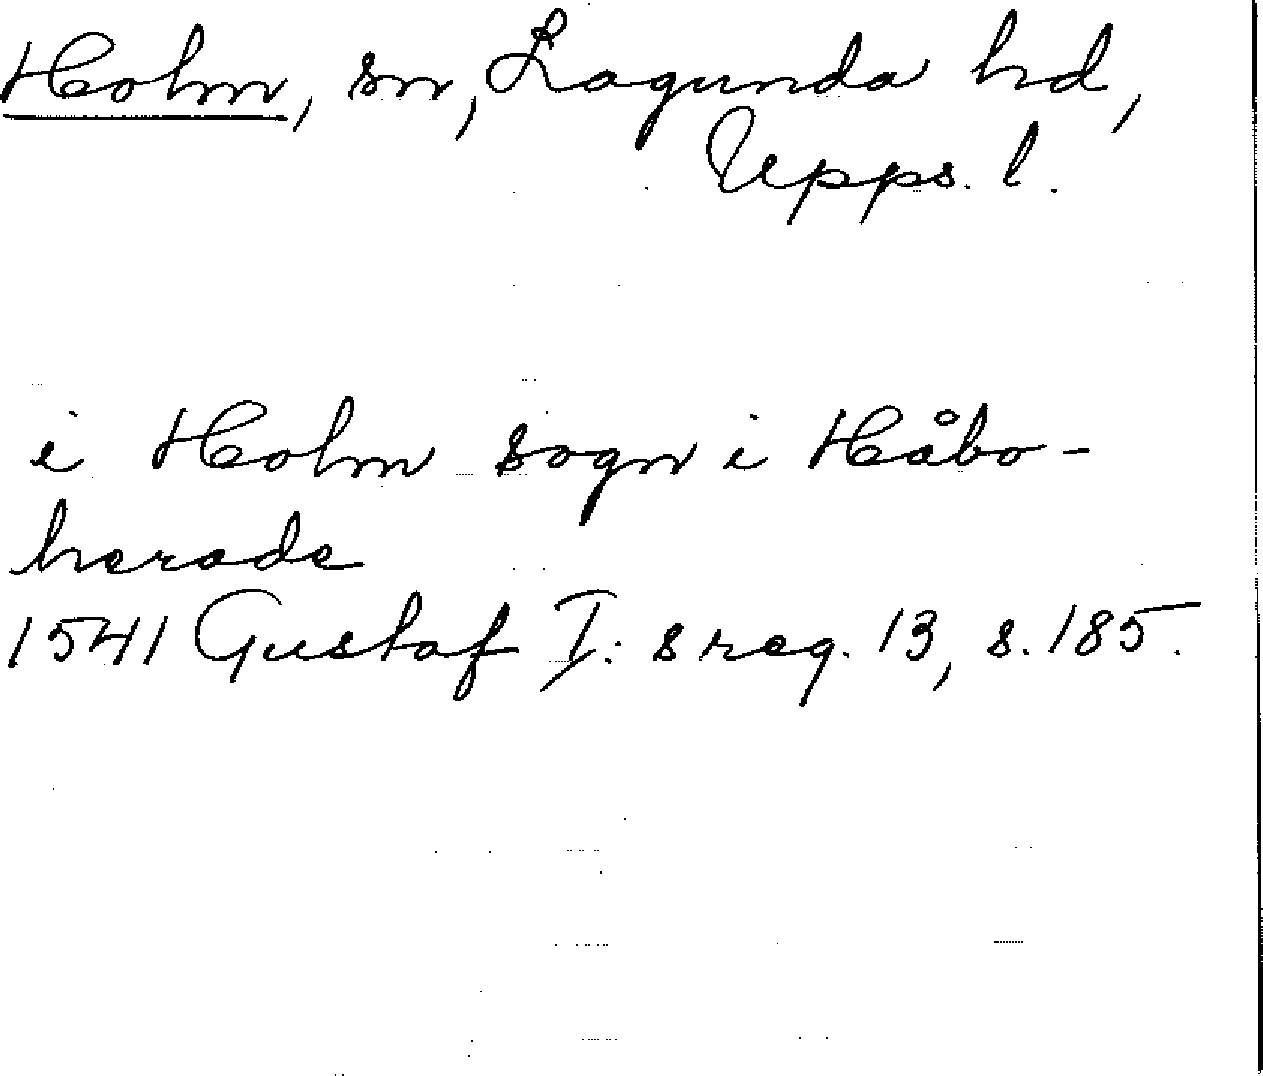 Holm, sn, Lagunda hd,
Upps. l.
i Holm sogn i Håbo-
herade
1541 Gustaf I:s reg. 13, s. 185.